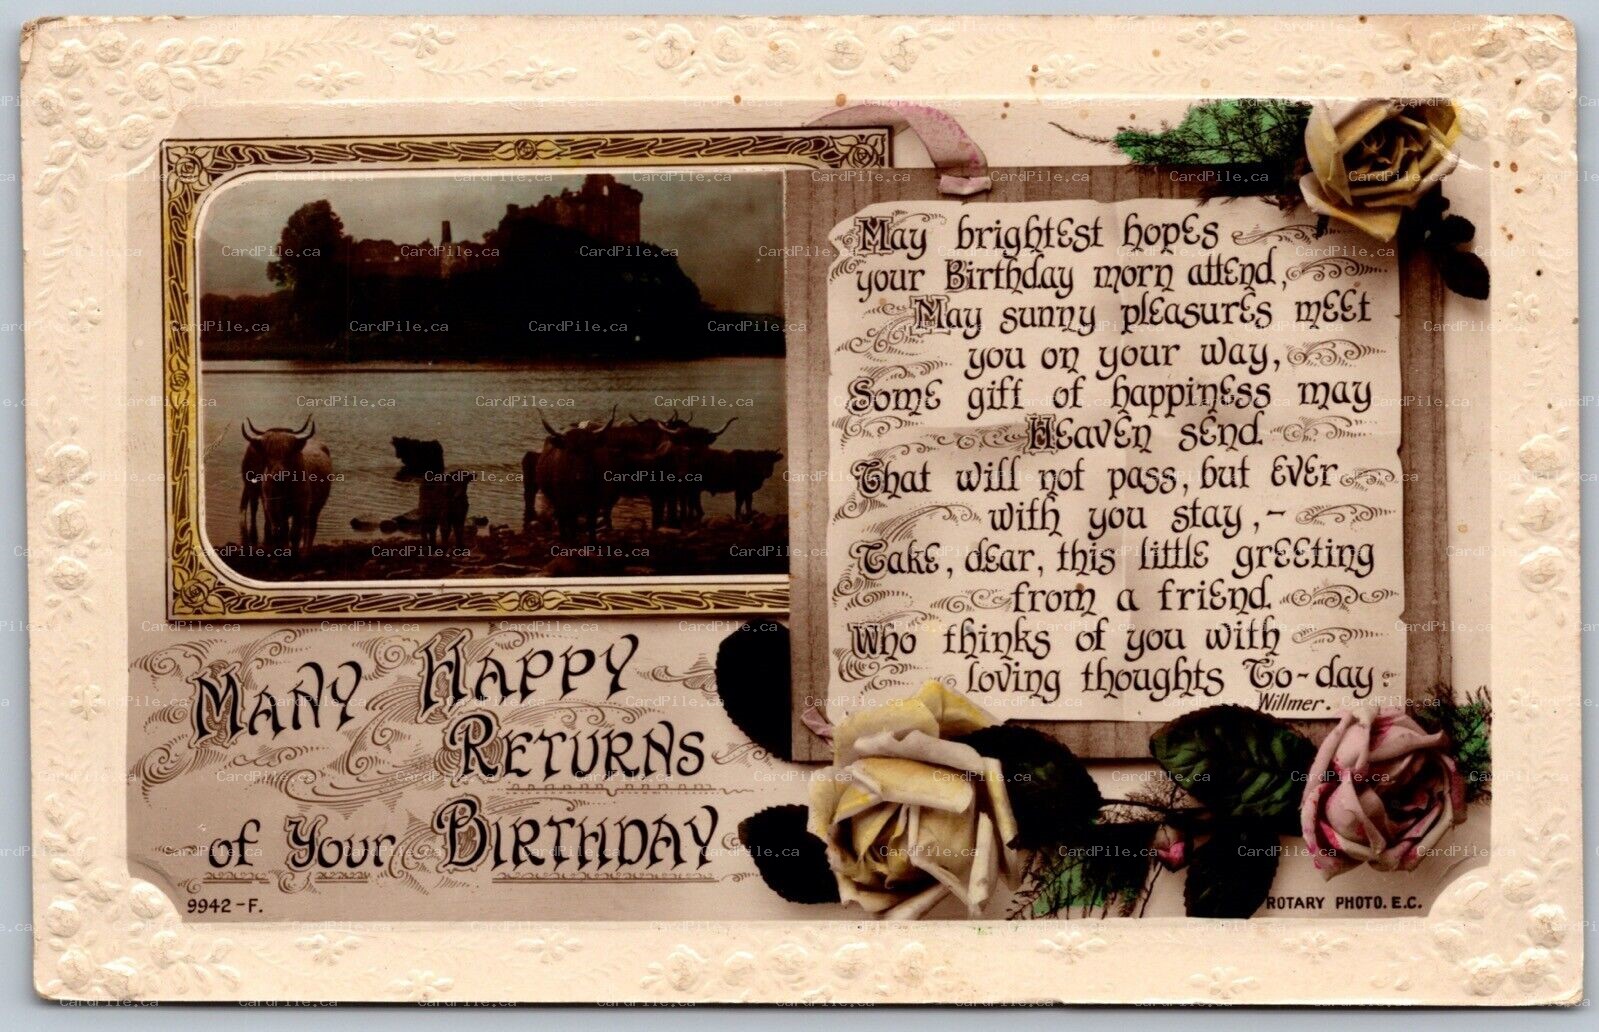 May brightest hopes
your Birthday morn attend,
May sunny pleasures meet
you on your way,
Some gift of happiness may
Heaven send
That will not pass, but ever
with you stay,-
Take, dear, this little greeting
from a friend
Who thinks of you with
loving thoughts To-day.
Willmer.
Many Happy
Returns
of Your Birthday
9942-F.
ROTARY PHOTO. E.C.
CardPile.ca